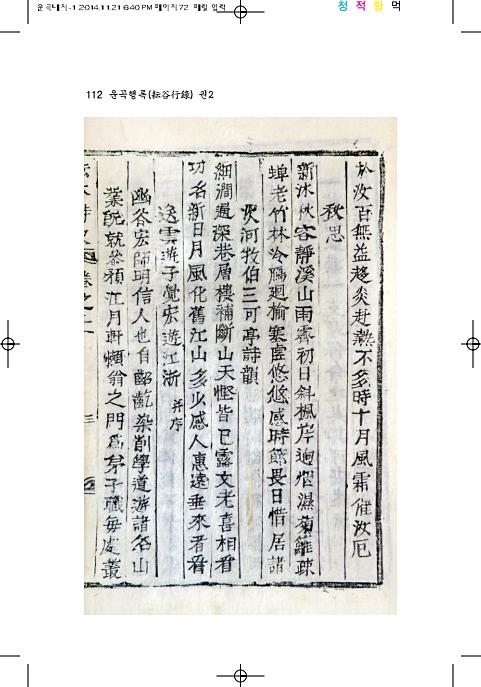 운곡내지-1 2014.11.21 6:40 PM 페이지72 매킬 입력
청 적 황 먹
112 운곡행록(耘谷行錄) 권2
於汝百無益趍炎赴熱不多時十月風霜催汝厄
秋思
新沐秋容靜溪山雨霽初日斜楓岸逈烟濕菊籬疎
蟬老竹林冷鴈廻楡塞虛悠悠感時節畏日惜居諸
次河牧伯三可亭詩韻
細澗邊深巷層樓補斷山天慳皆已露文老喜相看
功名新日月風化舊江山多少感人惠遠垂來者看
送雲遊子覺宏遊江浙 并序
幽谷宏師明信人也自齠齔染削學道遊諸名山
業旣就參預江月軒懶翁之門爲弟子職每處叢
卷之二
三